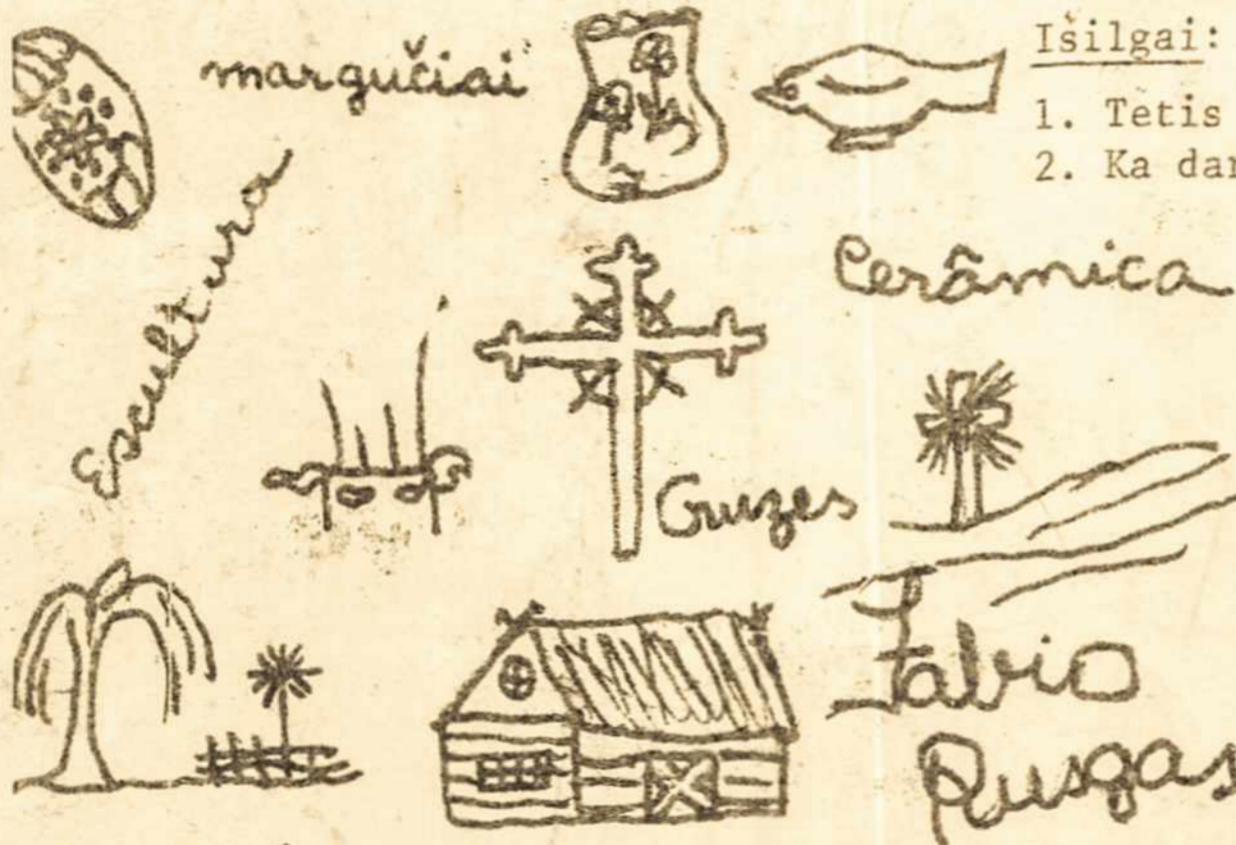 margučiai
Išilgai:
1. Tėtis
2. Ka dar
Escultura
Cerâmica
Cruzes
Fabio
Rusgas